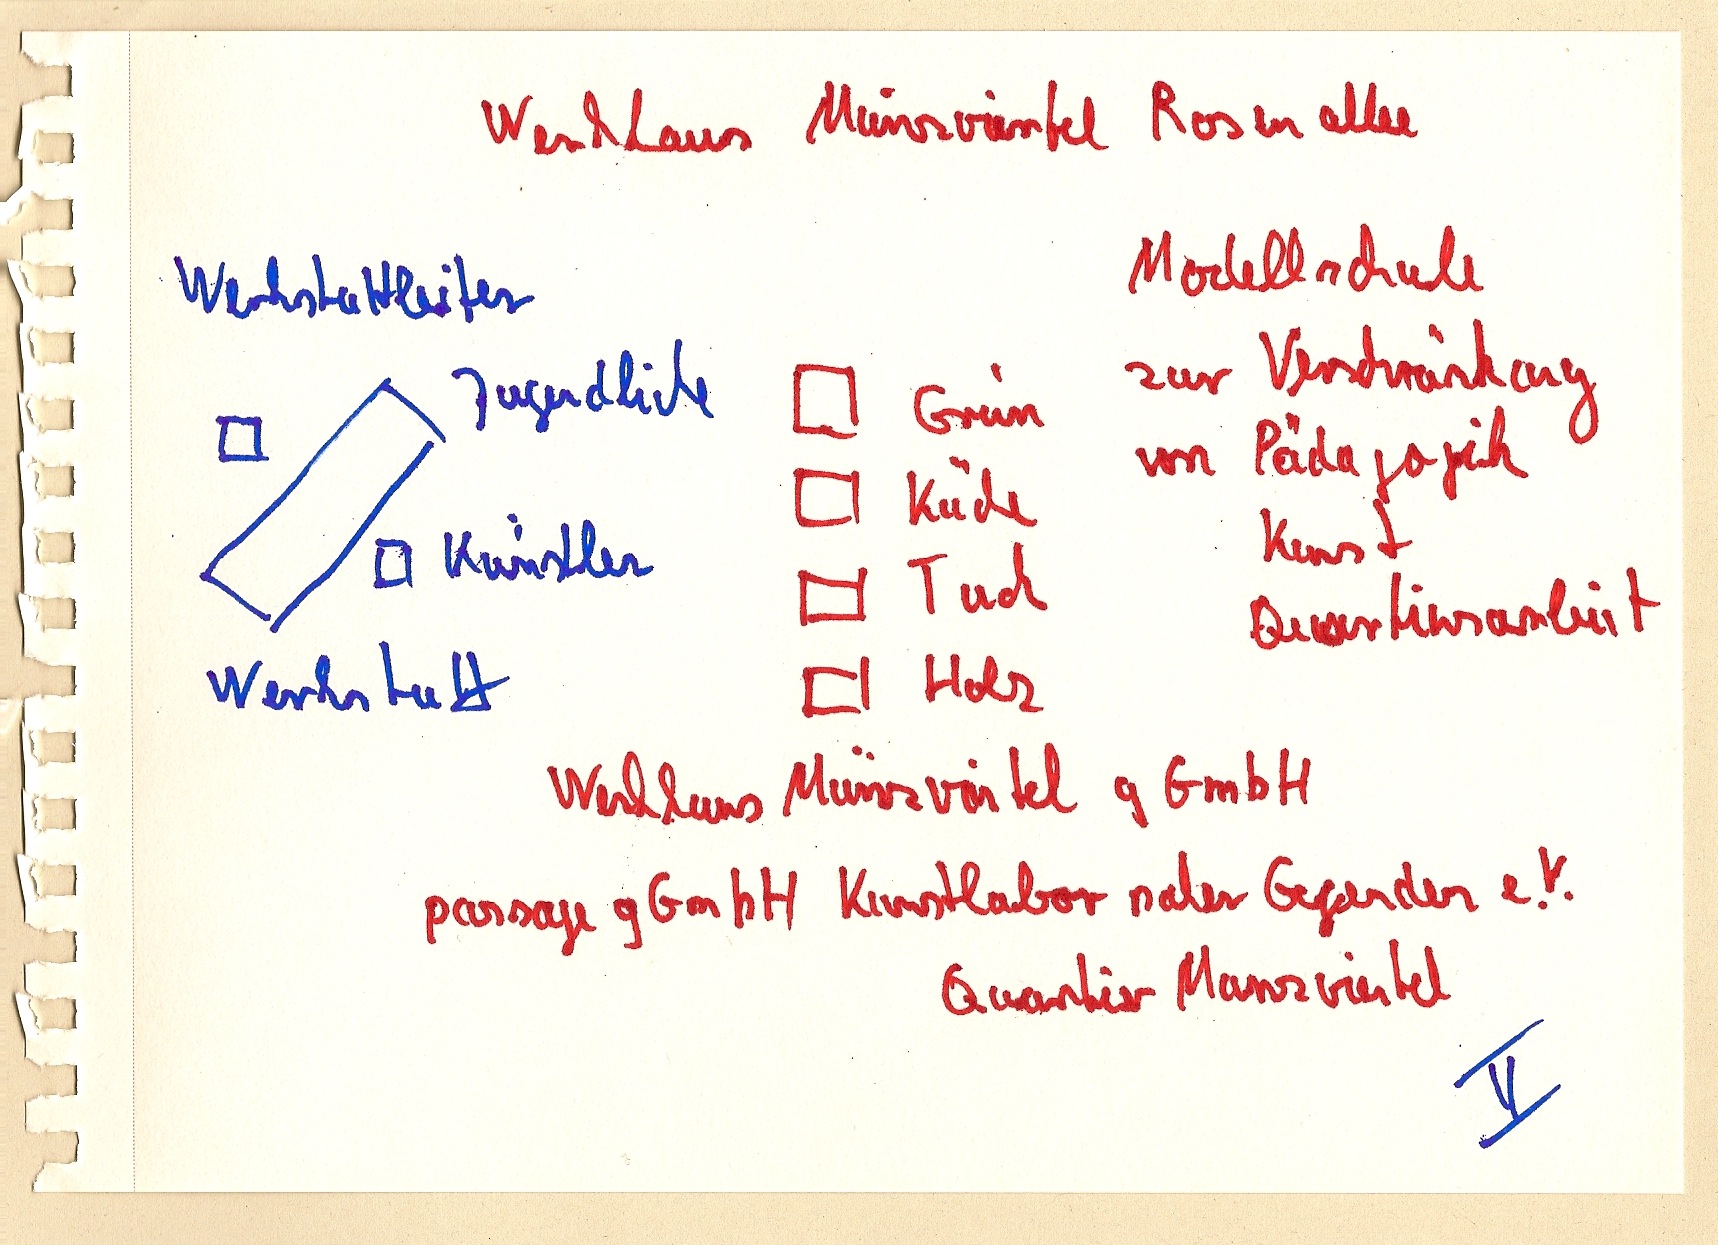 Werkhaus Münzviertel Rosenallee
Werkstattleiter
Jugendliche
Künstler
Werkstatt
Grün
Küche
Tuch
Holz
Modellschule
zur Verschränkung
von Pädagogik
Kunst
Quartiersarbeit
Werkhaus Münzviertel gGmbH
passage gGmbH Kunstlabor naher Gegenden e.V.
Quartier Münzviertel
V